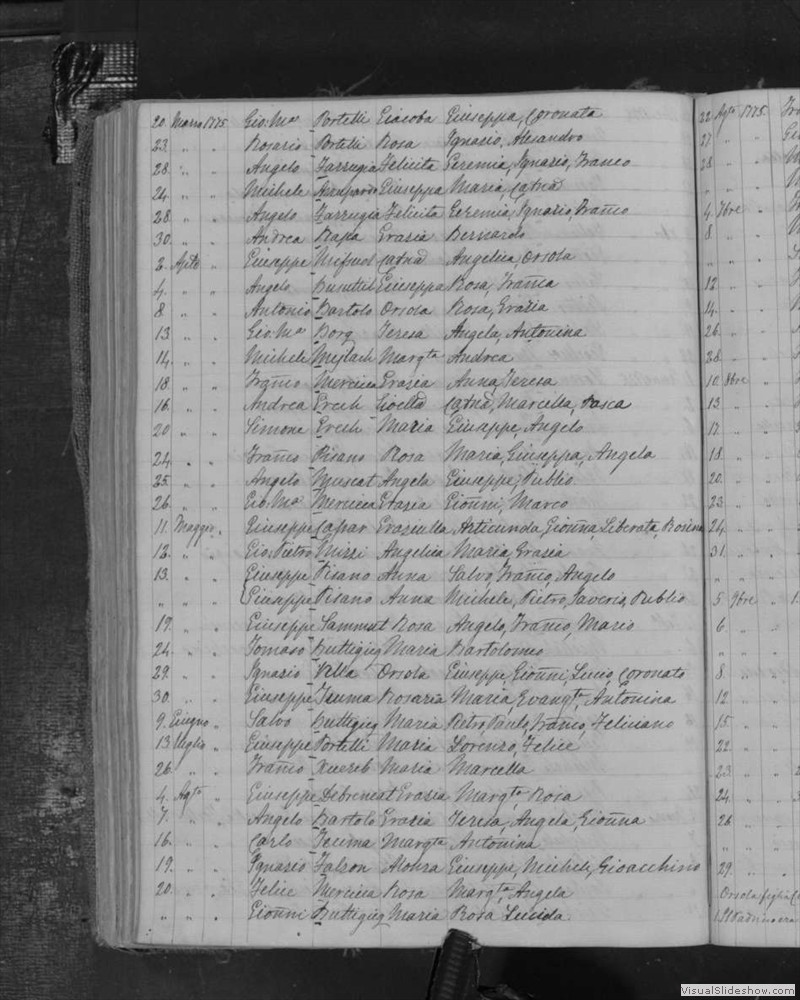 20. Marzo 1775 Gio: Ma Portelli Giacoba Giuseppa, Coronata
23. " " Rosario Portelli Rosa Ignazio, Alesandro
28. " " Angelo Farrugia Felicita Geremia, Ignazio, Franco
24. " " Michele Azzopardo Giuseppa Maria, Catna
28. " " Angelo Farrugia Felicita Geremia, Ignazio, Franco
30. " " Andrea Rapa Grazia Bernardo
2. Aple " Giuseppe Mifsud Catna Angelica, Orsola
4. " " Angelo Busuttil Giuseppa Rosa, Franca
8 " " Antonio Bartolo Orsola Rosa, Grazia
13 " " Gio: Ma Borg Teresa Angela, Antonina
14. " " Michele Mejlach Margta Andrea
18. " " Franco Mercieca Grazia Anna, Teresa
16. " " Andrea Grech Gioella Catna, Marcella, Pasca
20 " " Simone Grech Maria Giuseppe, Angelo
24. " " Franco Pisano Rosa Maria, Giuseppa, Angela
25. " " Angelo Muscat Angela Giuseppe, Publio
26. " " Gio: Ma Mercieca Grazia Gionni, Marco
11. Maggio " Giuseppe Caspar Graziulla Articunda, Gionna, Liberata, Rosina
12. " " Gio: Pietro Mizzi Angelica Maria, Grazia
13. " " Giuseppe Pisano Anna Salvo, Franco, Angelo
" " " Giuseppe Pisano Anna Michele, Pietro, Saverio, Publio
19. " " Giuseppe Sammut Rosa Angelo, Franco, Mario
24. " " Tomaso Buttigieg Maria Bartolomeo
29. " " Ignazio Vella Orsola Giuseppe, Gionni, Lucio, Coronato
30. " " Giuseppe Xuma Rosaria Maria, Evangta, Antonina
9. Giugno " Salvo Buttigieg Maria Pietro, Paulo, Franco, Feliciano
13 luglio " Giuseppe Portelli Maria Lorenzo, Felice
26. " " Franco Xuereb Maria Marcella
4. Agto " Giuseppe Debrincat Grazia Margta, Rosa
7. " " Angelo Bartolo Grazia Teresa, Angela, Gionna
16. " " Carlo Tecuma Margta Antonina
19. " " Ignazio Falzon Aloisa Giuseppe, Michele, Gioacchino
20. " " Felice Mercieca Rosa Margta, Angela
" " " Gionni Buttigieg Maria Rosa Lucida
22 Agto 1775
27 " "
28 " "
" " "
4. 7bre "
8 " "
" " "
12 " "
14. " "
26. " "
28. " "
10. 8bre "
13 " "
17. " "
18. " "
20. " "
23. " "
24. " "
31. " "
" " "
5 9bre "
6 " "
" " "
8. " "
12 " "
15 " "
22. " "
23. " "
24. " "
26 " "
29. " "
Orsola figlia
VisualSlideshow.com